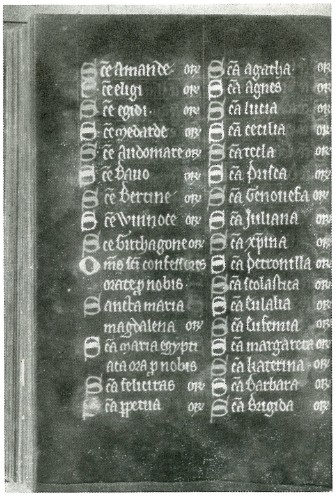 Sce Amande or
Sce eligi or
Sce egidi or
Sce medarde or
Sce Audomare or
Sce Bavo or
Sce Bertine or
Sce Winnoce or
Sce Guthagone or
Oms sci confessores
orate p nobis
Sancta maria
magdalena or
Scã maria egypti
aca ora p nobis
Scã felicitas or
Scã ppetua or
Scã agatha or
Scã agnes or
Scã lucia or
Scã cecilia or
Scã tecla or
Scã Prisca or
Scã Genovefa or
Scã Juliana or
Scã xpina or
Scã petronilla or
Scã scolastica or
Scã eulalia or
Scã Eufemia or
Scã margareta or
Scã katerina or
Scã Barbara or
Scã Brigida or